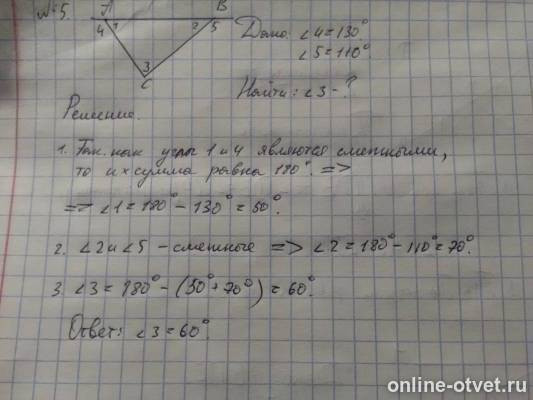 №5.
A B
4 1 2 5
3
C
Дано: ∠4=130°
∠5=110°.
Найти: ∠3-?
Решение.
1. Так как углы 1 и 4 являются смежными,
то их сумма равна 180°. =>
=> ∠1=180°-130°=50°.
2. ∠2 и ∠5 - смежные => ∠2=180°-110°=70°.
3. ∠3=180°-(50°+70°)=60°.
Ответ: ∠3=60°.
online-otvet.ru